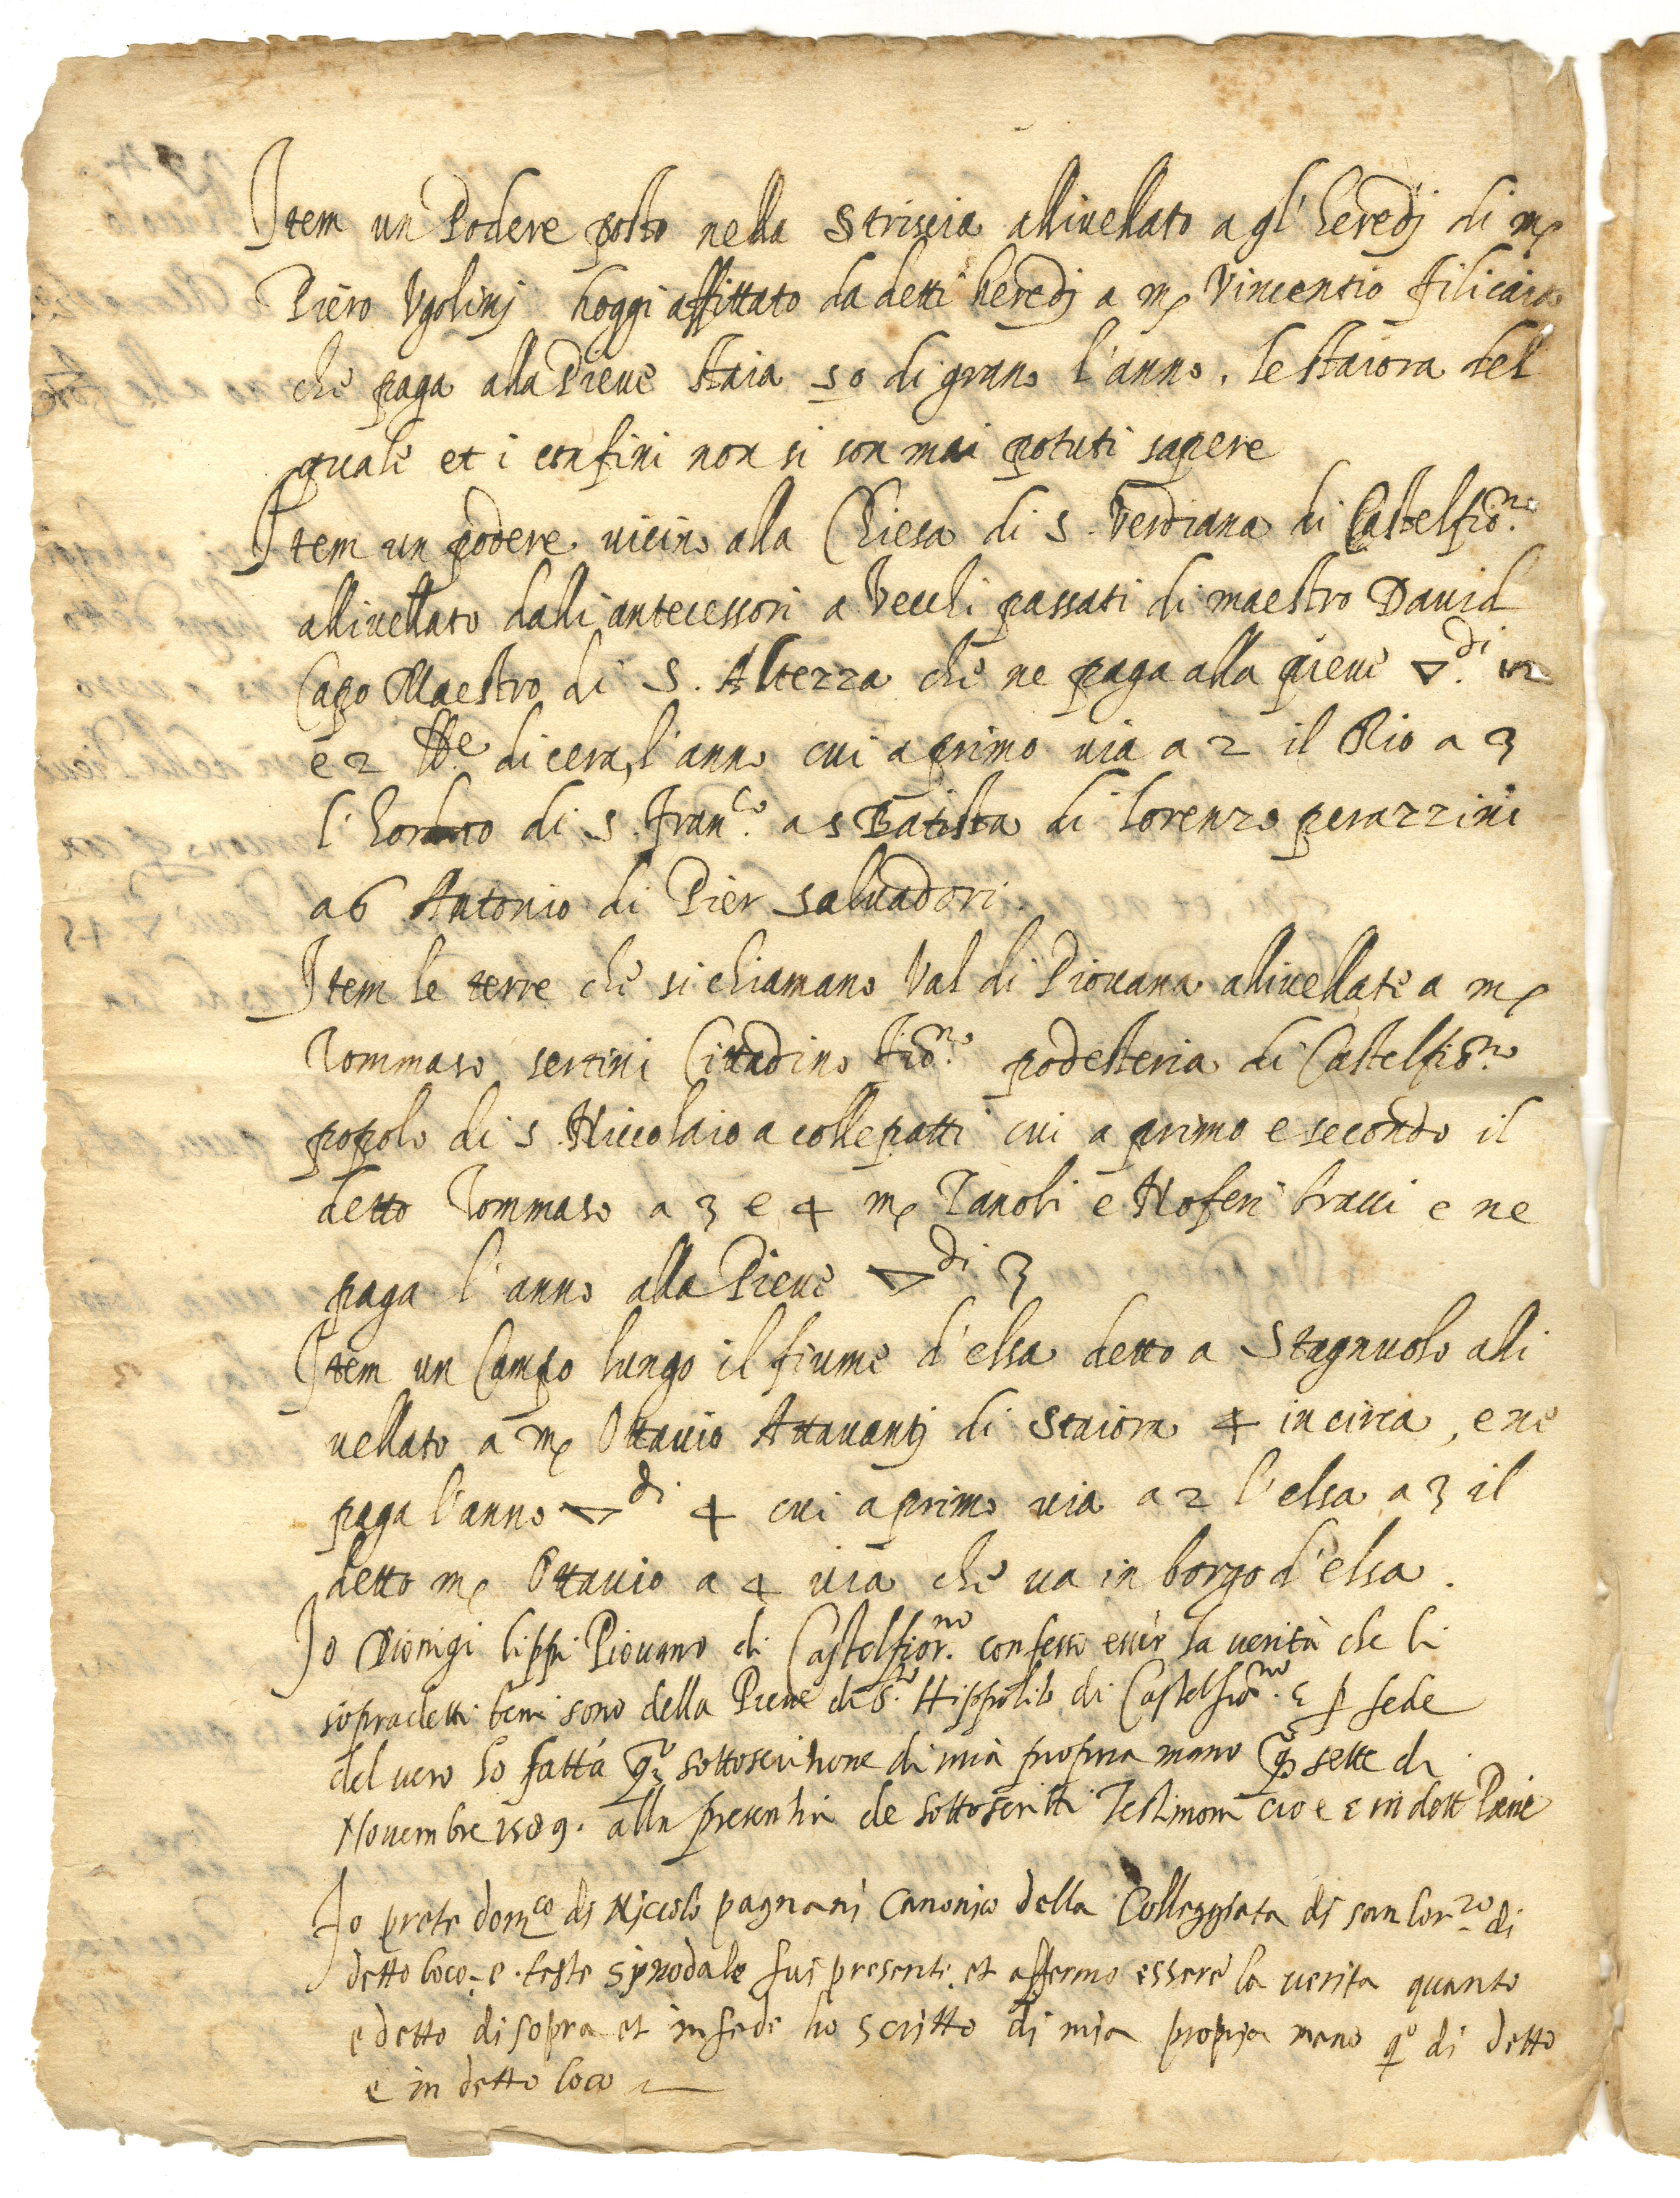 Item un Podere posto nella Striscia allivellato a gl' heredj di mr
Piero Vgolinj hoggi affittato da detti heredj a mr Vincentio filicaia
che paga alla Pieve staia 50 di grano l'anno. le staiora del
quale et i confini non si son mai potuti sapere
Item un podere vicino alla Chiesa di S. Verdiana di Castelfior.no
allivellato dalli antecessori a Vecchi passati di maestro David
Capo Maestro di S. Altezza che ne paga alla pieve ▽.di
e 2 lbe. di cera, l'anno cui a primo via a 2 il Rio a 3
l'horto di S. Fran.co a 5 Batista di Lorenzo perazzini
a 6 Antonio di Pier Salvadori.
Item le terre che si chiamano Val di Piovana allivellate a mr
Tommaso sertini Cittadino fior.no podesteria di Castelfior.no
popolo di S. Niccolaio a collepatti cui a primo e secondo il
detto Tommaso a 3 e 4 mr Zanobi e Noferi bracci e ne
paga l'anno alla Pieve ▽di 3
Item un Campo lungo il fiume d'elsa detto a Stagnuolo alli
vellato a mr Ottavio Attavantj di Staiora 4 in circa, e ne
paga l'anno ▽di 4 cui a primo via a 2 l'elsa a 3 il
detto mr Ottavio a 4 via che va in borgo d'elsa.
Io Dionigi lippi Piovano di Castelfior.no confesso esser la verità che li
sopradetti beni sono della Pieve di S.to Hippolito di Castelfior.no e p fede
del vero ho fatta q.a sottoscrittione di mia propria mano q.o sette di
Novembre 1589. alla presentia de sottoscritti Testimoni cio e e in dett Pieve
Io prete dom.co di Niccolo pagnani Canonico della Colleggiata di san lor.zo di
detto loco, e teste synodale fui presente et affermo essere la verita quanto
e detto di sopra et in fede ho scritto di mia propria mano q.o di detto
e in detto loco